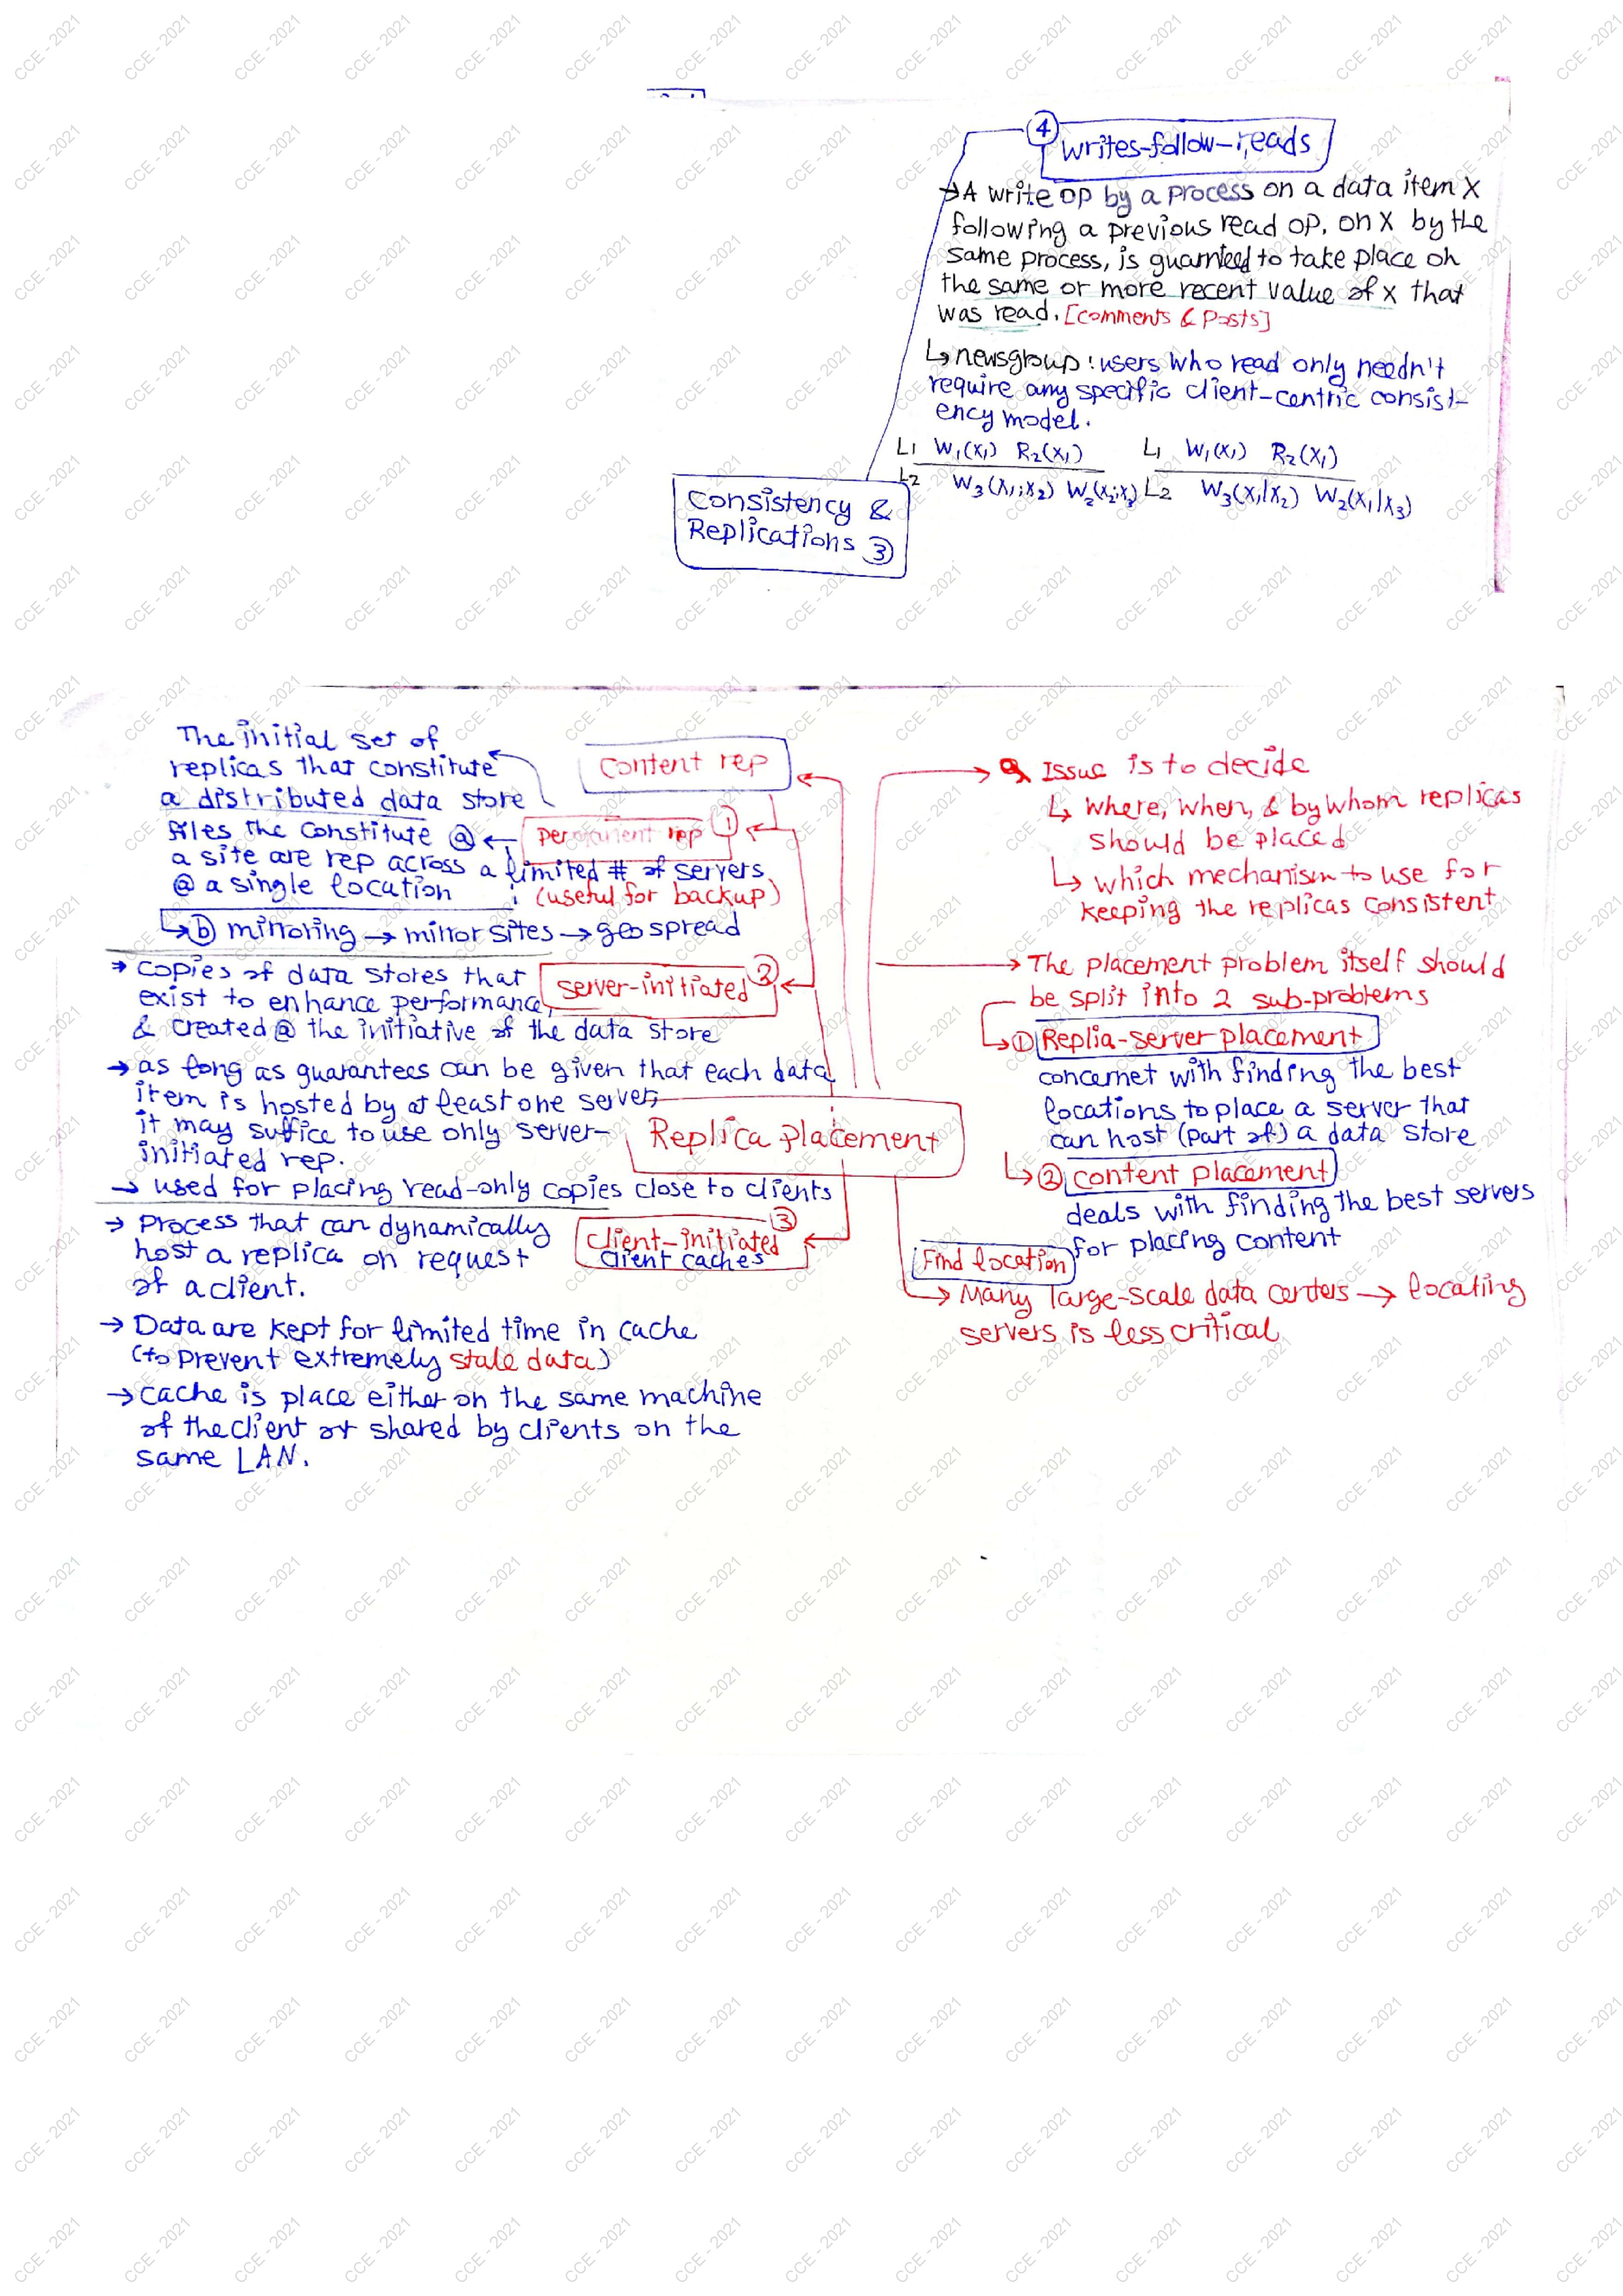 ④ writes-follow-reads
→ A write op by a process on a data item X
following a previous read op. on X by the
same process, is guarnteed to take place on
the same or more recent value of x that
was read. [comments & posts]
↳ newsgroup: users who read only needn't
require any specific client-centric consist-
ency model.
L1 W₁(x₁) R₂(x₁)
L2 W₃(x₁;x₂) W₂(x₂;x₃)
L1 W₁(x₁) R₂(x₁)
L2 W₃(x₁|x₂) W₂(x₁|x₃)
Consistency &
Replications ③
Content rep
The initial set of
replicas that constitute
a distributed data store
① permanent rep
files the constitute ⓐ
a site are rep across a limited # of servers
@ a single location
(useful for backup)
↳ ⓑ mirroring → mirror sites → geo spread
② server-initiated
→ copies of data stores that
exist to enhance performance,
& created @ the initiative of the data store
→ as long as guarantees can be given that each data
item is hosted by at least one server,
it may suffice to use only server-
initiated rep.
→ used for placing read-only copies close to clients
③ client-initiated
client caches
→ Process that can dynamically
host a replica on request
of a client.
→ Data are kept for limited time in cache
(to prevent extremely stale data)
→ cache is place either on the same machine
of the client or shared by clients on the
same LAN.
Replica placement
→ Issue is to decide
↳ where, when, & by whom replicas
should be placed
↳ which mechanism to use for
keeping the replicas consistent
→ The placement problem itself should
be split into 2 sub-problems
↳ ① Replia-server placement
concernet with finding the best
locations to place a server that
can host (part of) a data store
↳ ② content placement
deals with finding the best servers
for placing content
Find location
→ Many large-scale data centers → locating
servers is less critical
CCE - 2021